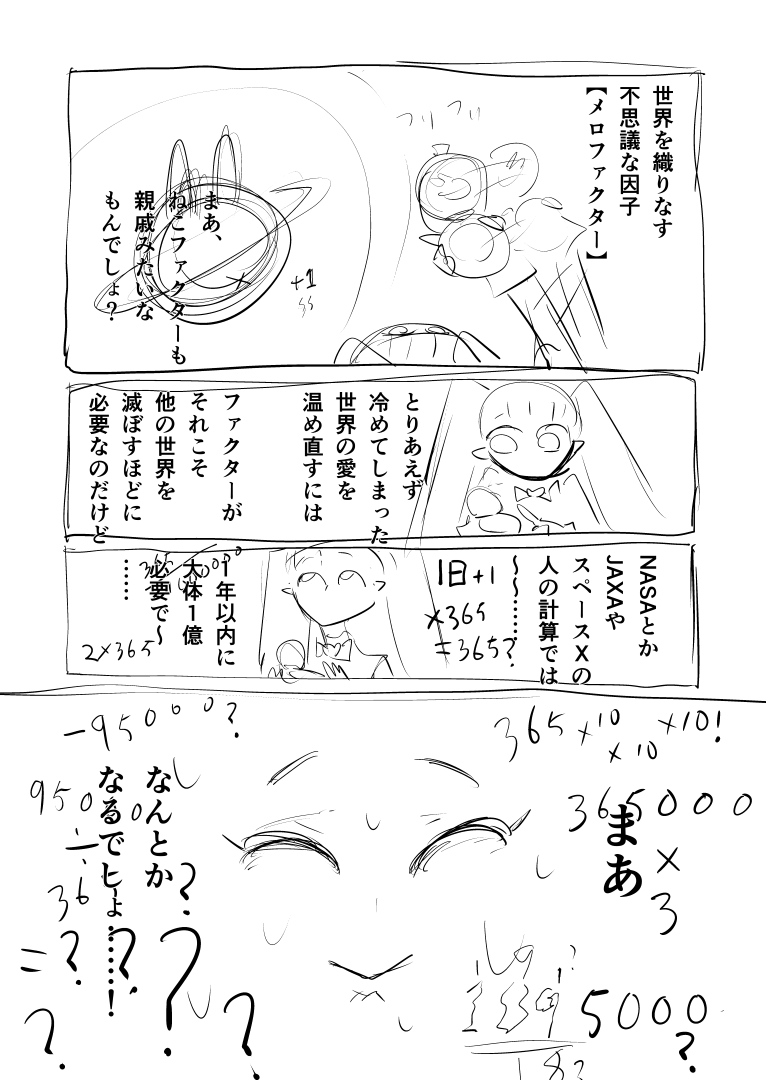 世界を織りなす
不思議な因子
【メロファクター】
フリ フリ
まあ、
ねこファクターも
親戚みたいな
もんでしょ？
+1
とりあえず
冷めてしまった
世界の愛を
温め直すには
ファクターが
それこそ
他の世界を
滅ぼすほどに
必要なのだけど
NASAとか
JAXAや
スペースXの
人の計算では
〜〜……
1日+1
×365
=365?
1年以内に
大体1億
必要で〜
……
2×365
365×10 ×10!
×10
365000
×
3
まあ
5000
?
-95000?
950
÷
36
=?
なんとか
なるでしょ……！
?
?
?
?
?